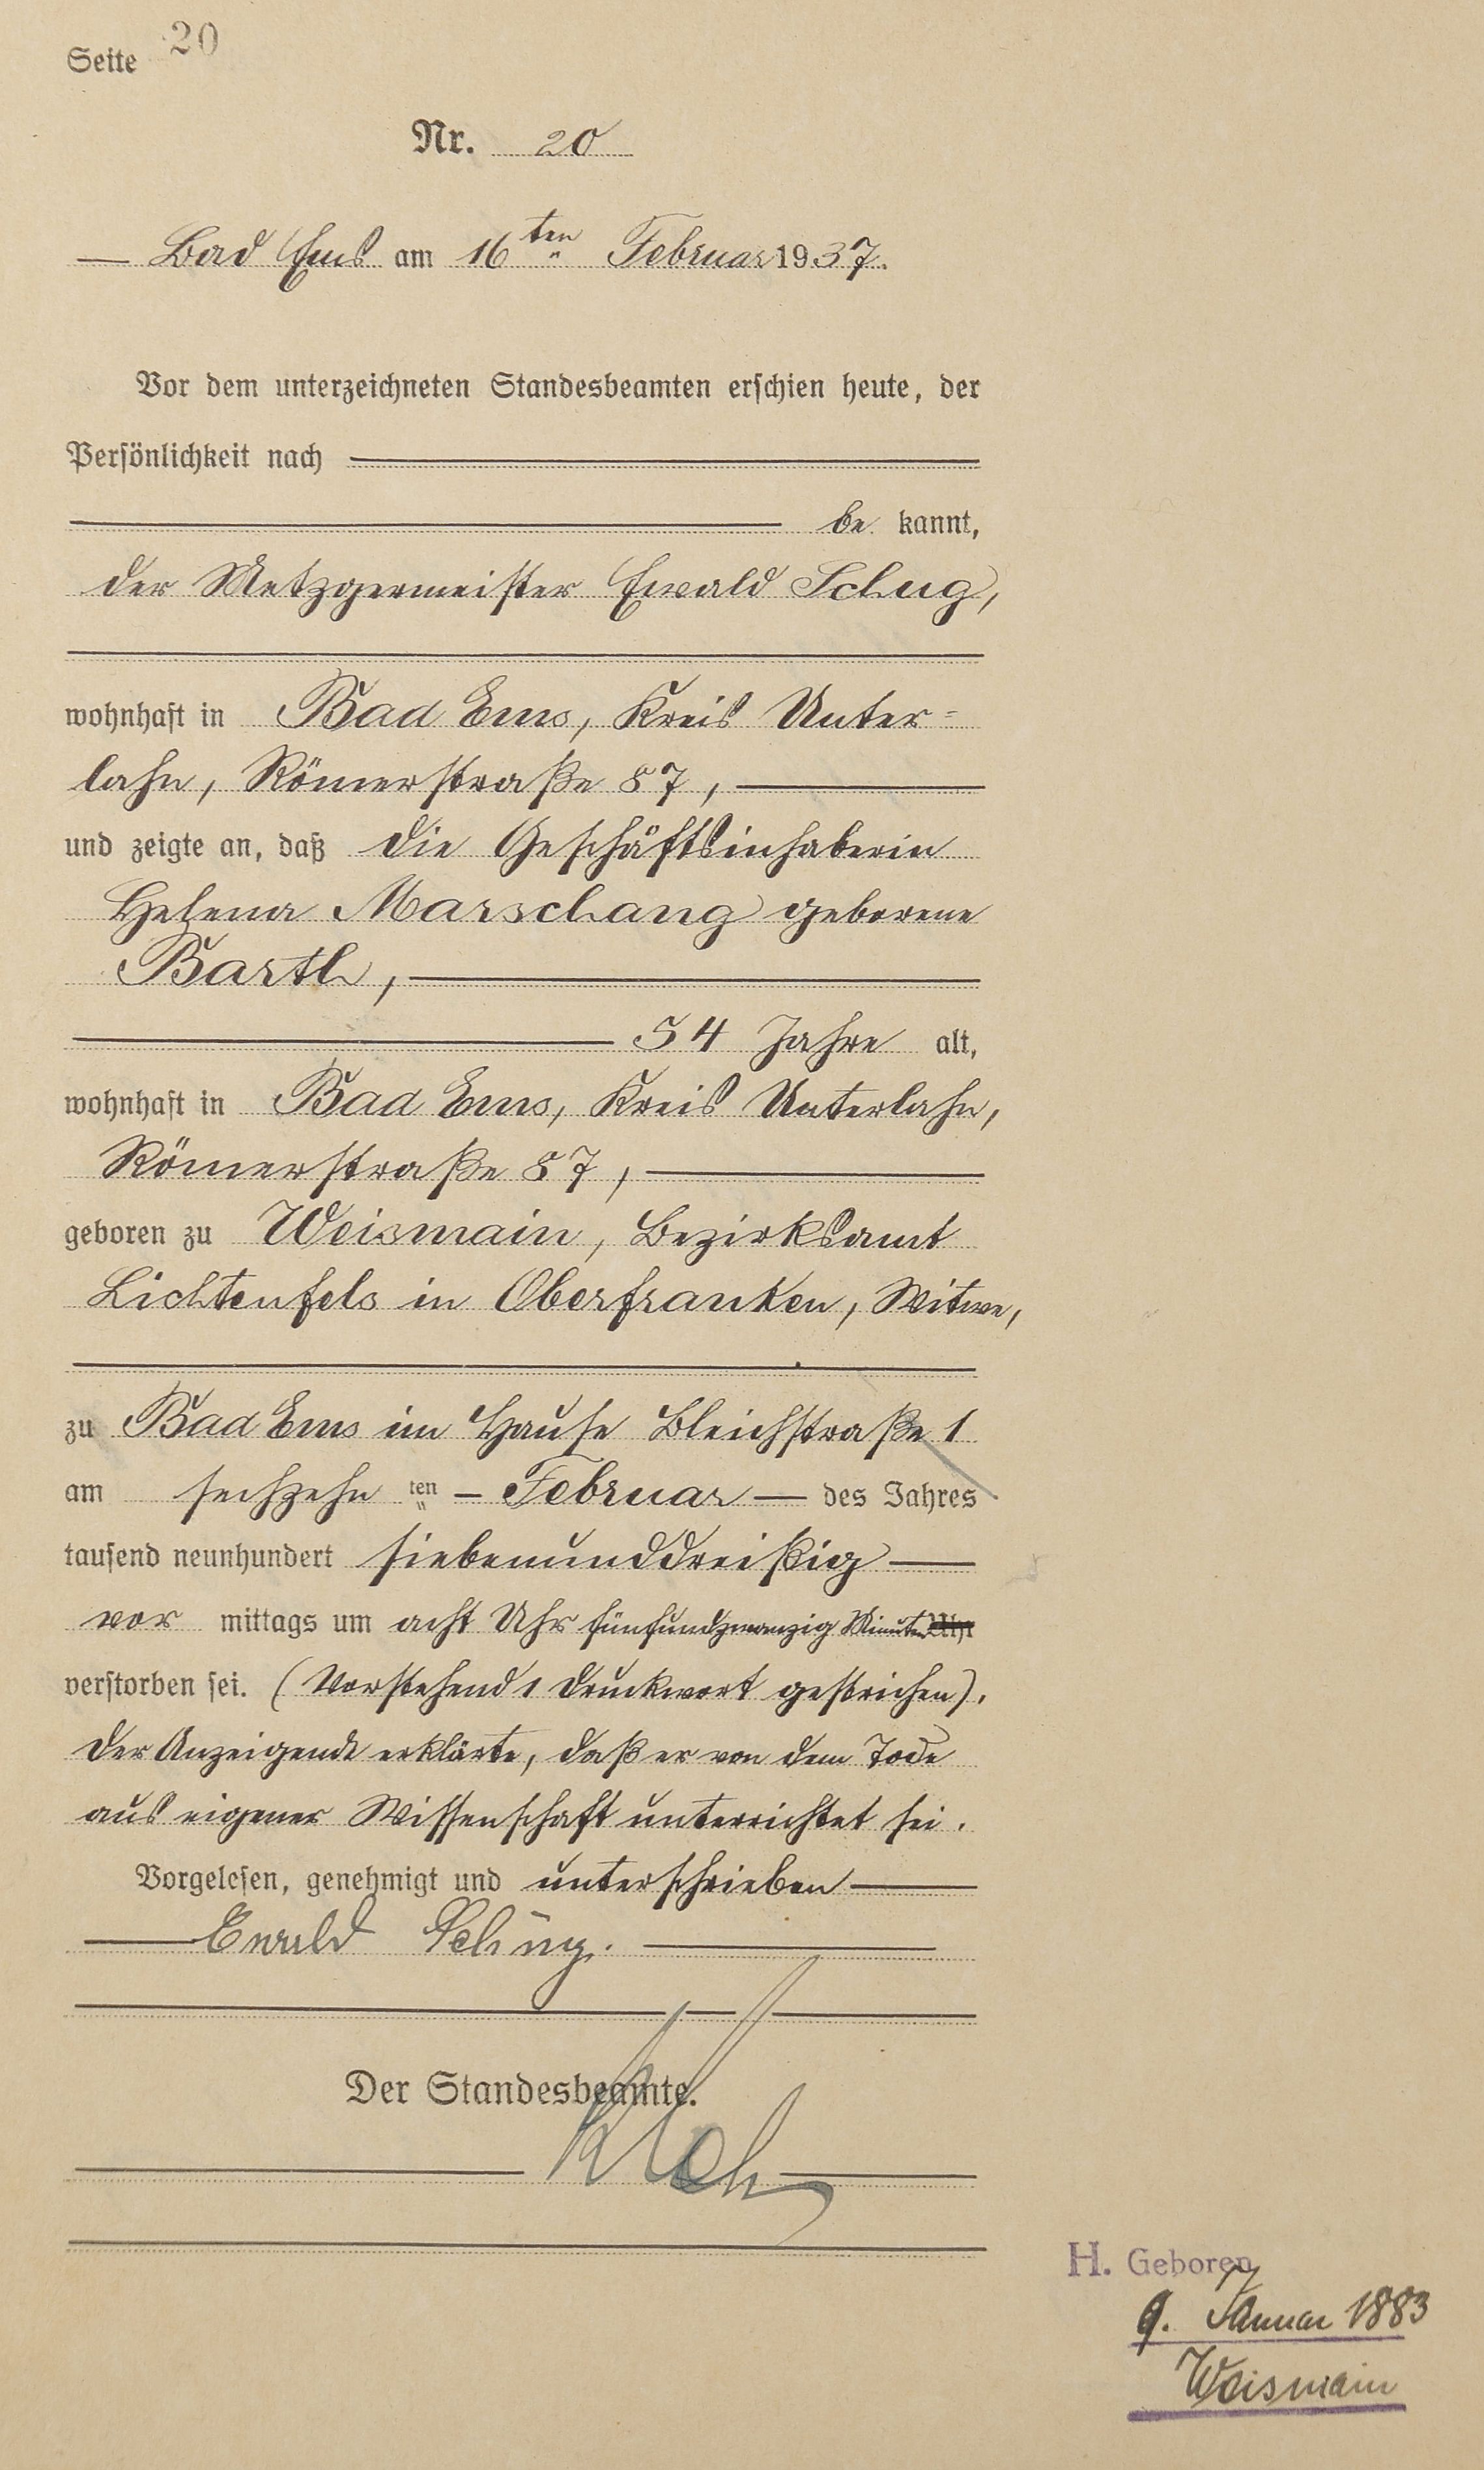 Seite 20
Nr. 20
— Bad Ems am 16ten Februar 1937.
Vor dem unterzeichneten Standesbeamten erschien heute, der
Persönlichkeit nach
be kannt,
der Metzgermeister Ewald Schug,
wohnhaft in Bad Ems, Kreis Unter=
lahn, Römerstraße 87,
und zeigte an, daß die Geschäftsinhaberin
Helena Marschang geborene
Barth,
54 Jahre alt,
wohnhaft in Bad Ems, Kreis Unterlahn,
Römerstraße 87,
geboren zu Weismain, Bezirksamt
Lichtenfels in Oberfranken, Witwe,
zu Bad Ems im Hause Bleichstraße 1
am sechzehn ten — Februar — des Jahres
tausend neunhundert siebenunddreißig —
vor mittags um acht Uhr fünfundzwanzig Minuten Uhr
verstorben sei. (Vorstehend 1 Druckwort gestrichen).
Der Anzeigende erklärte, daß er von dem Tode
aus eigener Wissenschaft unterrichtet sei.
Vorgelesen, genehmigt und unterschrieben —
— Ewald Schug. —
Der Standesbeamte.
H. Geboren
9. Januar 1883
Weismain